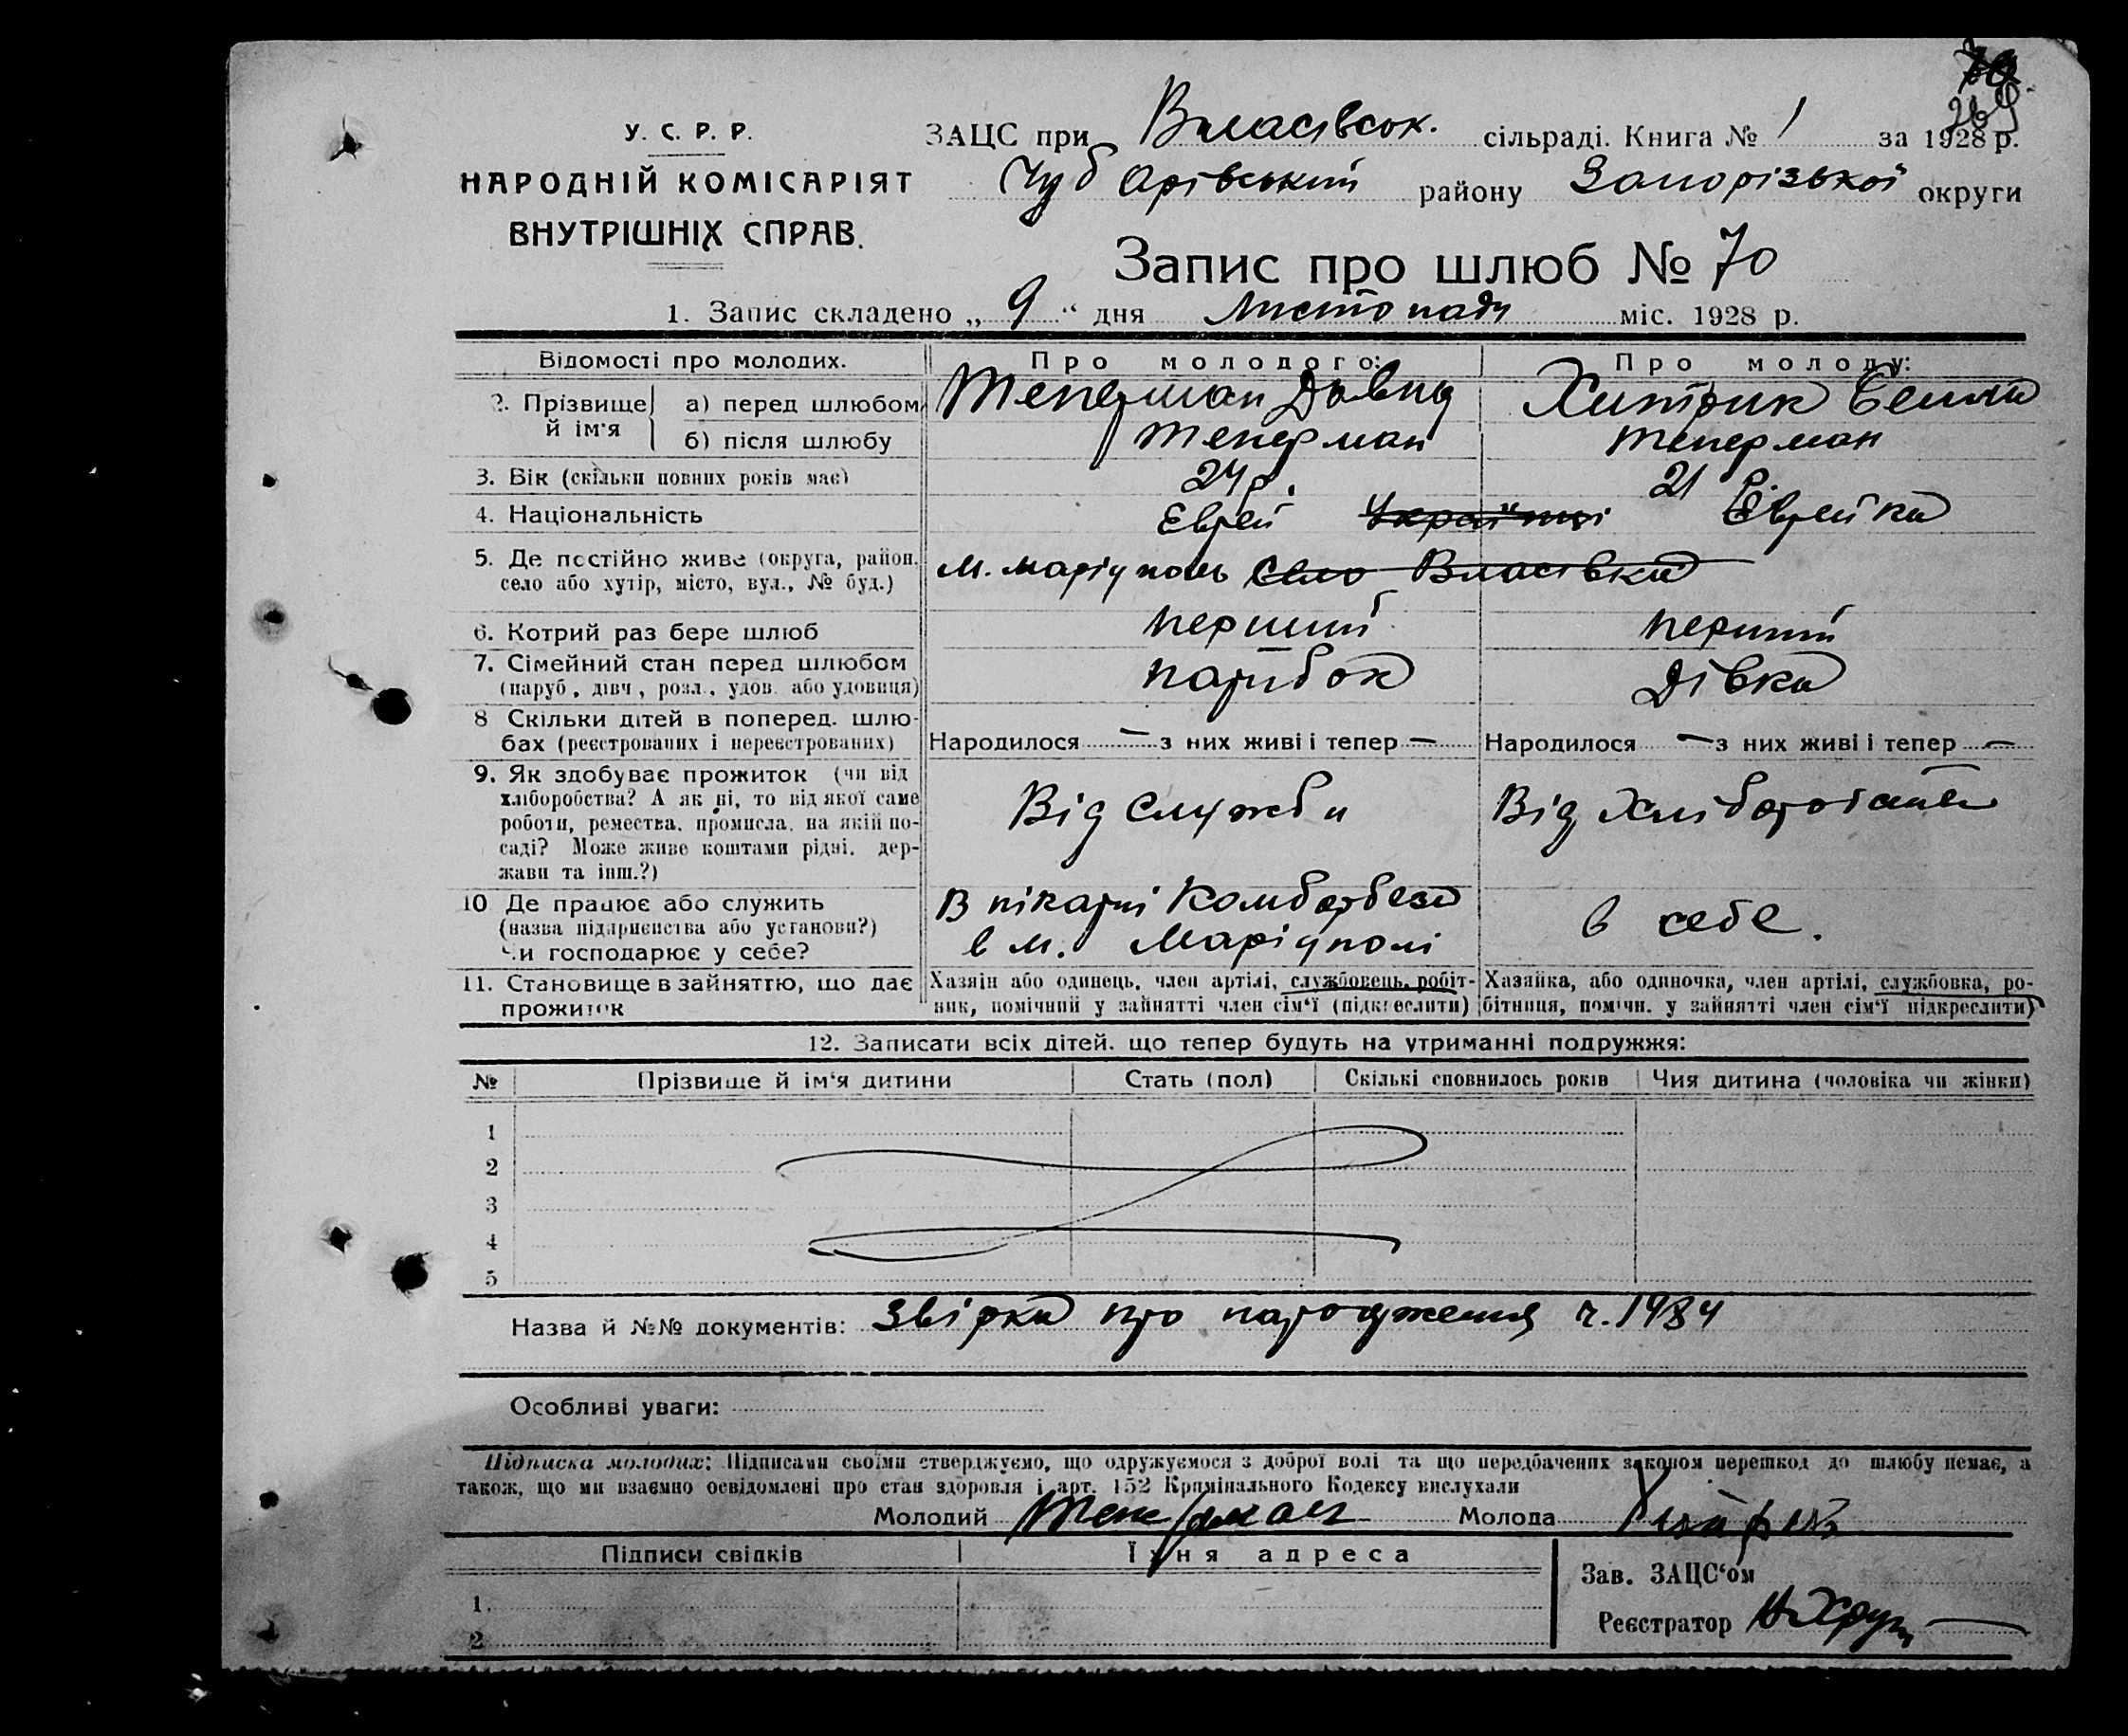 264
У. С. Р. Р.
НАРОДНІЙ КОМІСАРІЯТ
ВНУТРІШНІХ СПРАВ.
ЗАЦС при Власівськ. сільраді. Книга № 1 за 1928 р.
Чубарівський району Запорізької округи
Запис про шлюб № 70
1. Запис складено „ 9 “ дня Листопада міс. 1928 р.
Відомості про молодих. Про молодого: Про молоду:
2. Прізвище й ім'я а) перед шлюбом Теперман Давид Хитрик Бейля
б) після шлюбу Теперман Теперман
3. Вік (скільки повних років має) 24 р. 21 р.
4. Національність Еврей Українці Еврейка
5. Де постійно живе (округа, район, село або хутір, місто, вул., № буд.) м. маріуполь Село Власівка
6. Котрий раз бере шлюб перший перший
7. Сімейний стан перед шлюбом парубок Дівка
(паруб., дівч., розл., удов. або удовиця)
8 Скільки дітей в поперед. шлюбах (реєстрованих і нереєстрованих) Народилося — з них живі і тепер — Народилося — з них живі і тепер —
9. Як здобуває прожиток (чи від
хліборобства? А як ні, то від якої саме
роботи, ремества, промисла, на якій по-
саді? Може живе коштами рідні, дер-
жави та інш.?)
Від служби Від Хліборобства
10 Де працює або служить
(назва підприємства або установи?)
Чи господарює у себе?
В пікарні Комборбеза
в м. Маріуполі
в себе.
11. Становище в зайняттю, що дає прожиток
Хазяін або одинець, член артілі, службовець, робіт-
ник, помічний у зайнятті член сім‘ї (підкреслити)
Хазяйка, або одиночка, член артілі, службовка, ро-
бітниця, помічн. у зайнятті член сім‘ї підкреслити)
12. Записати всіх дітей, що тепер будуть на утриманні подружжя:
№ Прізвище й ім‘я дитини Стать (пол) Скількі сповнилось років Чия дитина (чоловіка чи жінки)
1
2
3
4
5
Назва й №№ документів: Звірка про народження ч. 1984
Особливі уваги:
Підписка молодих: Підписами своїми стверджуємо, що одружуємося з доброї волі та що передбачених законом перешкод до шлюбу немає, а
також, що ми взаємно освідомлені про стан здоровля і арт. 152 Кримінального Кодексу вислухали
Молодий Теперман Молода Хитрик
Підписи свідків Їхня адреса
1.
2
Зав. ЗАЦС‘ом
Реєстратор